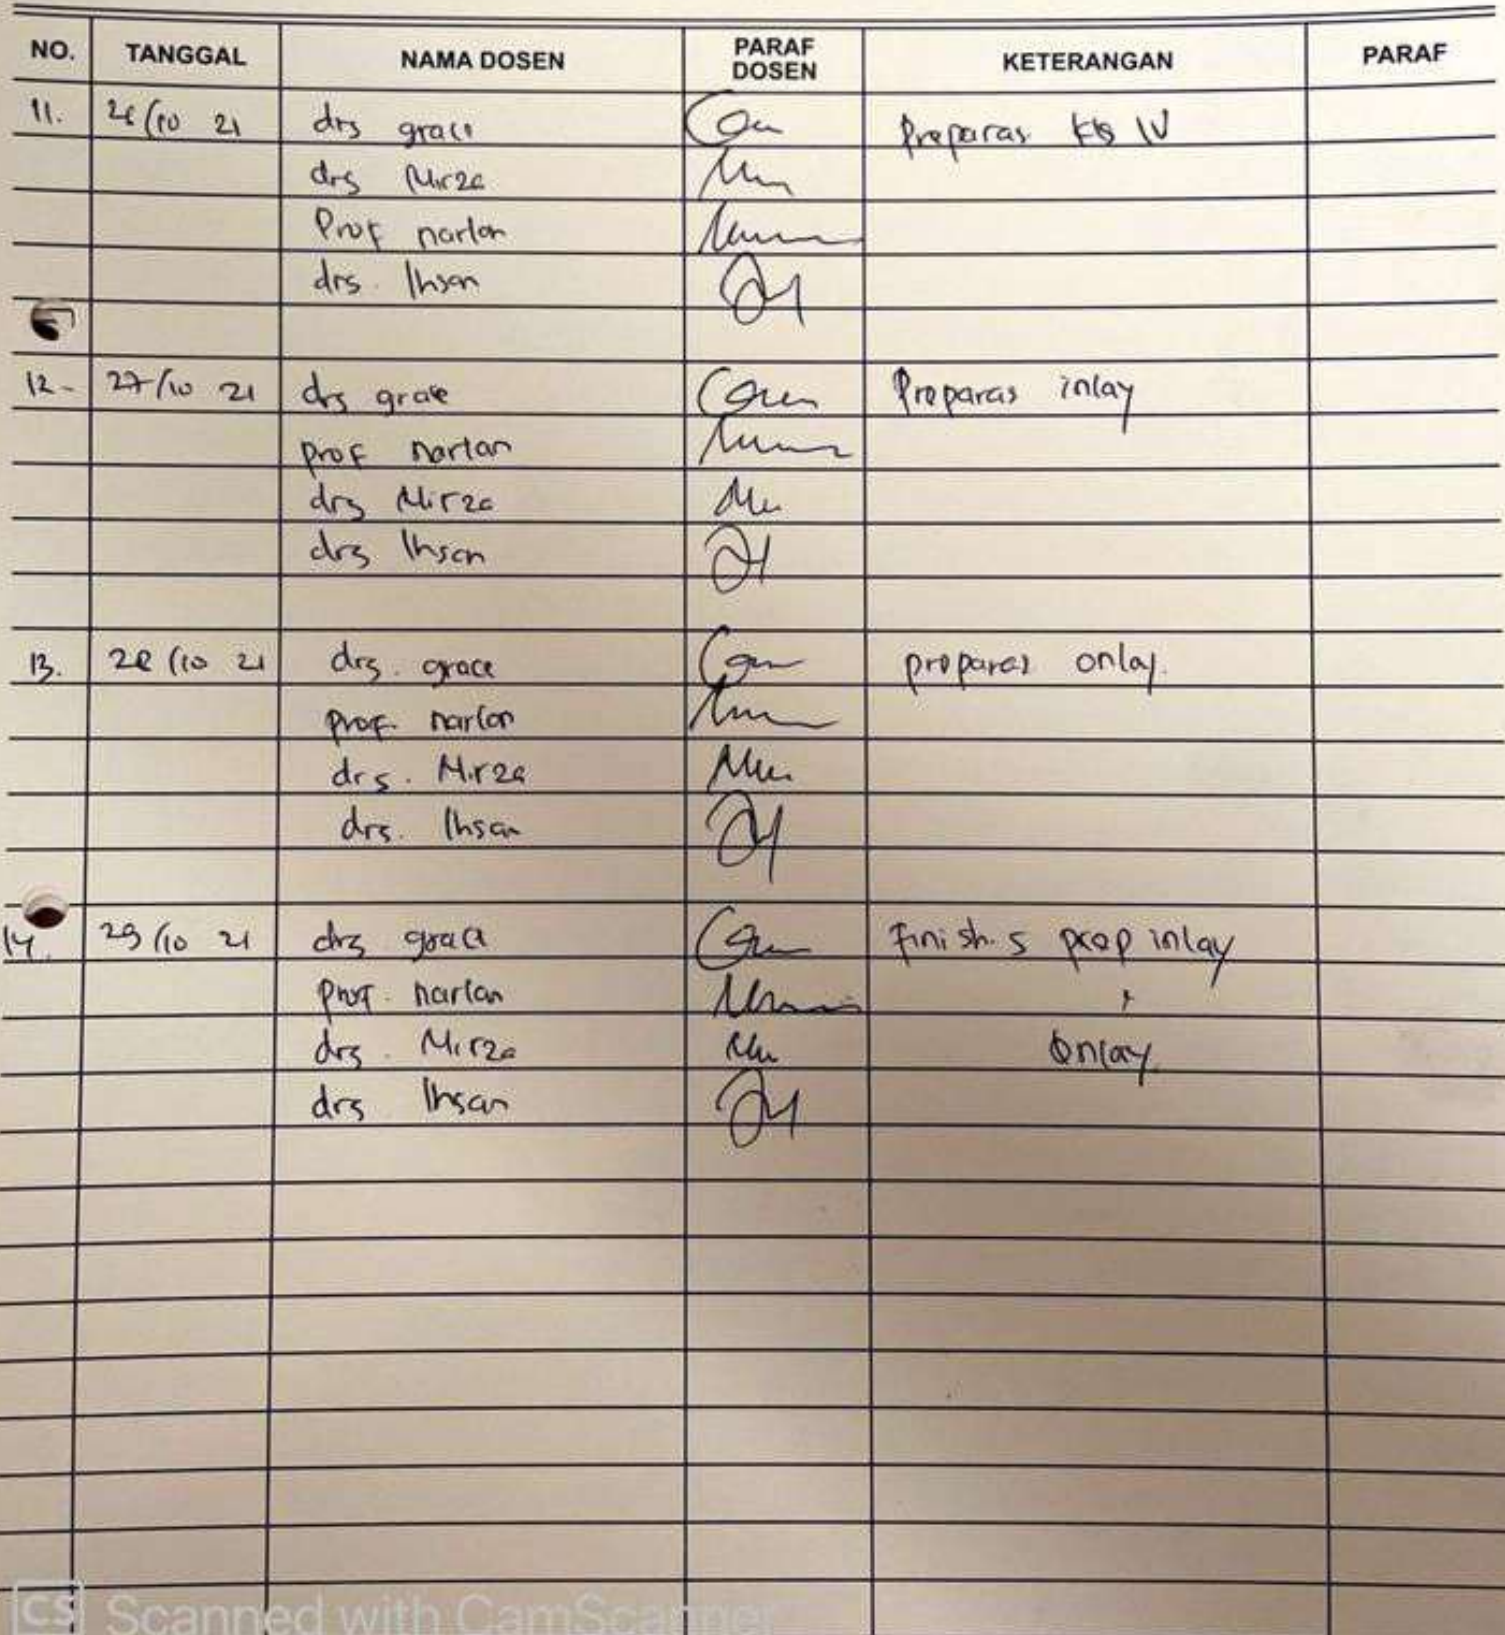 NO. TANGGAL NAMA DOSEN PARAF DOSEN KETERANGAN PARAF
11. 26/10 21 drs grace Preparas kls IV
drs Mirza
Prof narlan
drs. Ihsan
12- 27/10 21 drs grace Preparas inlay
prof narlan
drs Mirza
drs Ihsan
13. 28/10 21 drs. grace preparas onlay.
prof. narlan
drs. Mirza
drs. Ihsan
14. 29/10 21 drs grace Finish.s prep inlay
prof. narlan +
drs. Mirza Onlay.
drs Ihsan
CS Scanned with CamScanner